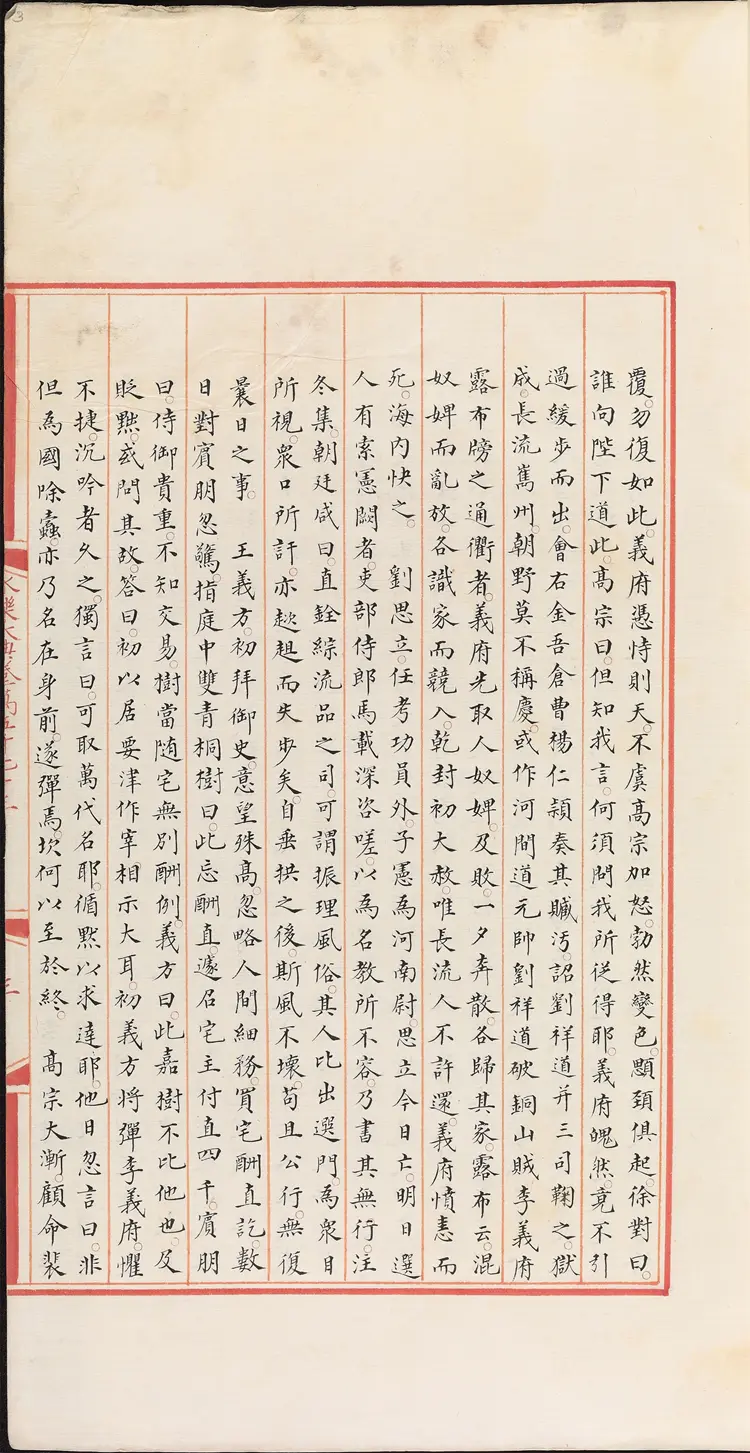 覆。勿復如此。義府憑恃則天。不虞髙宗加怒。勃然變色。顋頸俱起。徐對曰。
誰向陛下道此。髙宗曰。但知我言。何須問我所従得耶。義府睍然。竟不引
過緩步而出。會右金吾倉曹楊仁頴奏其贓汚。詔劉祥道并三司鞠之。獄
成。長流嶲州。朝野莫不稱慶。或作河間道元帥劉祥道破銅山賊李義府
露布牓之通衢者。義府先取人奴婢。及敗。一夕奔散。各歸其家。露布云。混
奴婢而亂放。各識家而競入。乾封初大赦。唯長流人不許還。義府憤恚而
死。海内快之。 劉思立。任考功員外。子憲為河南尉。思立今日亡。明日選
人有索憲闕者。吏部侍郎馬載深咨嗟。以為名教所不容。乃書其無行。注
冬集。朝廷咸曰。直銓綜流品之司。可謂振理風俗。其人比出選門。為衆目
所視。衆口所訐。亦趑趄而失步矣。自垂拱之後。斯風不壞。苟且公行。無復
曩日之事。 王義方。初拜御史。意望殊髙。忽略人間細務。買宅酬直訖。數
日對賓朋忽驚。指庭中雙青桐樹曰。此忘酬直。遽召宅主付直四千。賓朋
曰。侍御貴重。不知交易。樹當随宅無別酬例。義方曰。此嘉樹不比他也。及
貶黜。或問其故。答曰。初以居要津作宰。相示大耳。初義方将彈李義府。懼
不捷。沉吟者久之。獨言曰。可取萬代名耶。循黙以求達耶。他日忽言曰。非
但為國除蠧。亦乃名在身前。遂彈焉。坎何以至於終。 髙宗大漸。顧命裴
永樂大典卷
三
3